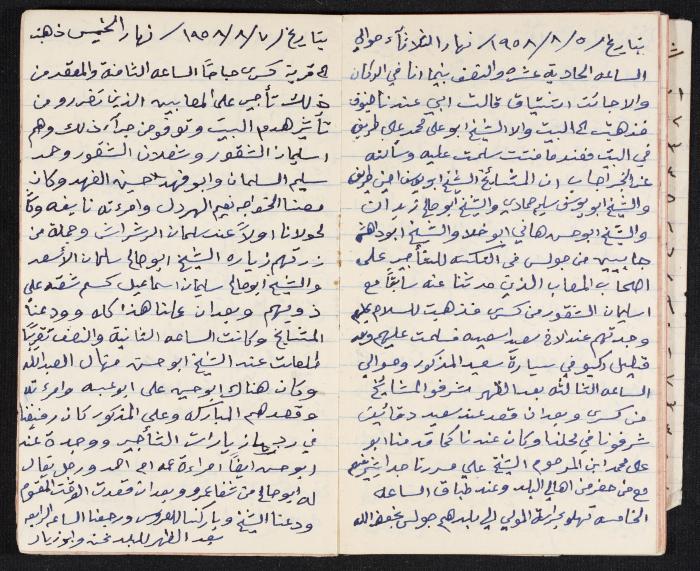 بتاريخ ٥/٨/١٩٥٨/ نهار الثلاثاء حوالي
الساعه الحادية عشره والنصف بينما انا في الدكان
والا جائت اشتياق قالت ابي عندنا ضيوف
فذهبت الى البيت والا الشيخ ابو علي محمد علي
في البيت فعندما فتت سلمت عليه وسألته
عن الخبر اجاب ان المشائخ الشيخ ابو يوسف امين طريف
والشيخ ابو يوسف سليم حمادي والشيخ ابو صالح زيدان
والشيخ ابو حسن هاني ابو خلا والشيخ
جايين من جولس في التأجير على
اصحاب المصاب الذين حدثنا عنه سابقا مع
اسليمان الشقور من كسرى فذهبت للسلام عليهم
وجدتهم عند سعيد فسلمت عليهم وبعد
قليل ركبو في سيارة سعيد المذكور وحوالي
الساعه الثالثه بعد الظهر شرفو المشائخ
من كسرى وبعد ان قعد عند سعيد دقائق
شرفونا في محلنا وكان عندنا كما قدمنا ابو
علي محمد ابن المرحوم الشيخ علي
مع من حضر من اهالي البلد وعند طباق الساعه
الخامسه تهلو بحراسة المولى الى بلدهم جولس بحفظ الله
بتاريخ ٧/٨/١٩٥٨/ نهار الخميس ذهبنا
الى قرية كسرى صباحا الساعه الثامنة والمقصد من
ذلك تأجير على المصابيين الذين تضررو من
تأثير هدم البيت وتوفو من جراء ذلك وهم
اسليمان الشقور وشعلان الشقور وحمد
سليم السلمان وابو فهد حسين الفهد وكان
معنا الخواجه نعيم الهردل وامرءته نايفه وكان
نحولانا اولا عند سلمان الرشراش وجملة من
زرتهم زياره الشيخ ابو صالح سلمان الأسعد
والشيخ ابو صالح سلمان اسماعيل كسر شفقه على
ذويهم وبعد ان عملنا هذا كله وودعنا
المشايخ وكانت الساعه الثانية والنصف تقريبا
طلعات عند الشيخ ابو حسن منهال العبدالله
وكان هناك ابو حسين علي ابو عبيه وامرءته
وقصدهم المباركه وعلي المذكور كان رفيقنا
في زيارات التأجير ووجدة عند
ابو حسن ايضا امراءة عمه ام احمد ورجل يقال
له ابو صالح من شفاعمرو وبعد ان قعدت الوقت المقوم
ودعنا الشيخ وباركنا للعروس ورجعنا الساعه الرابعه
بعد الظهر للبلد نحن وابو زياد